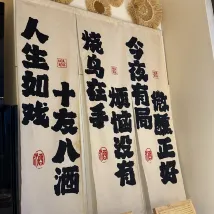 人生如戏
十友八酒
烧鸟在手
烦恼没有
今夜有局
微醺正好